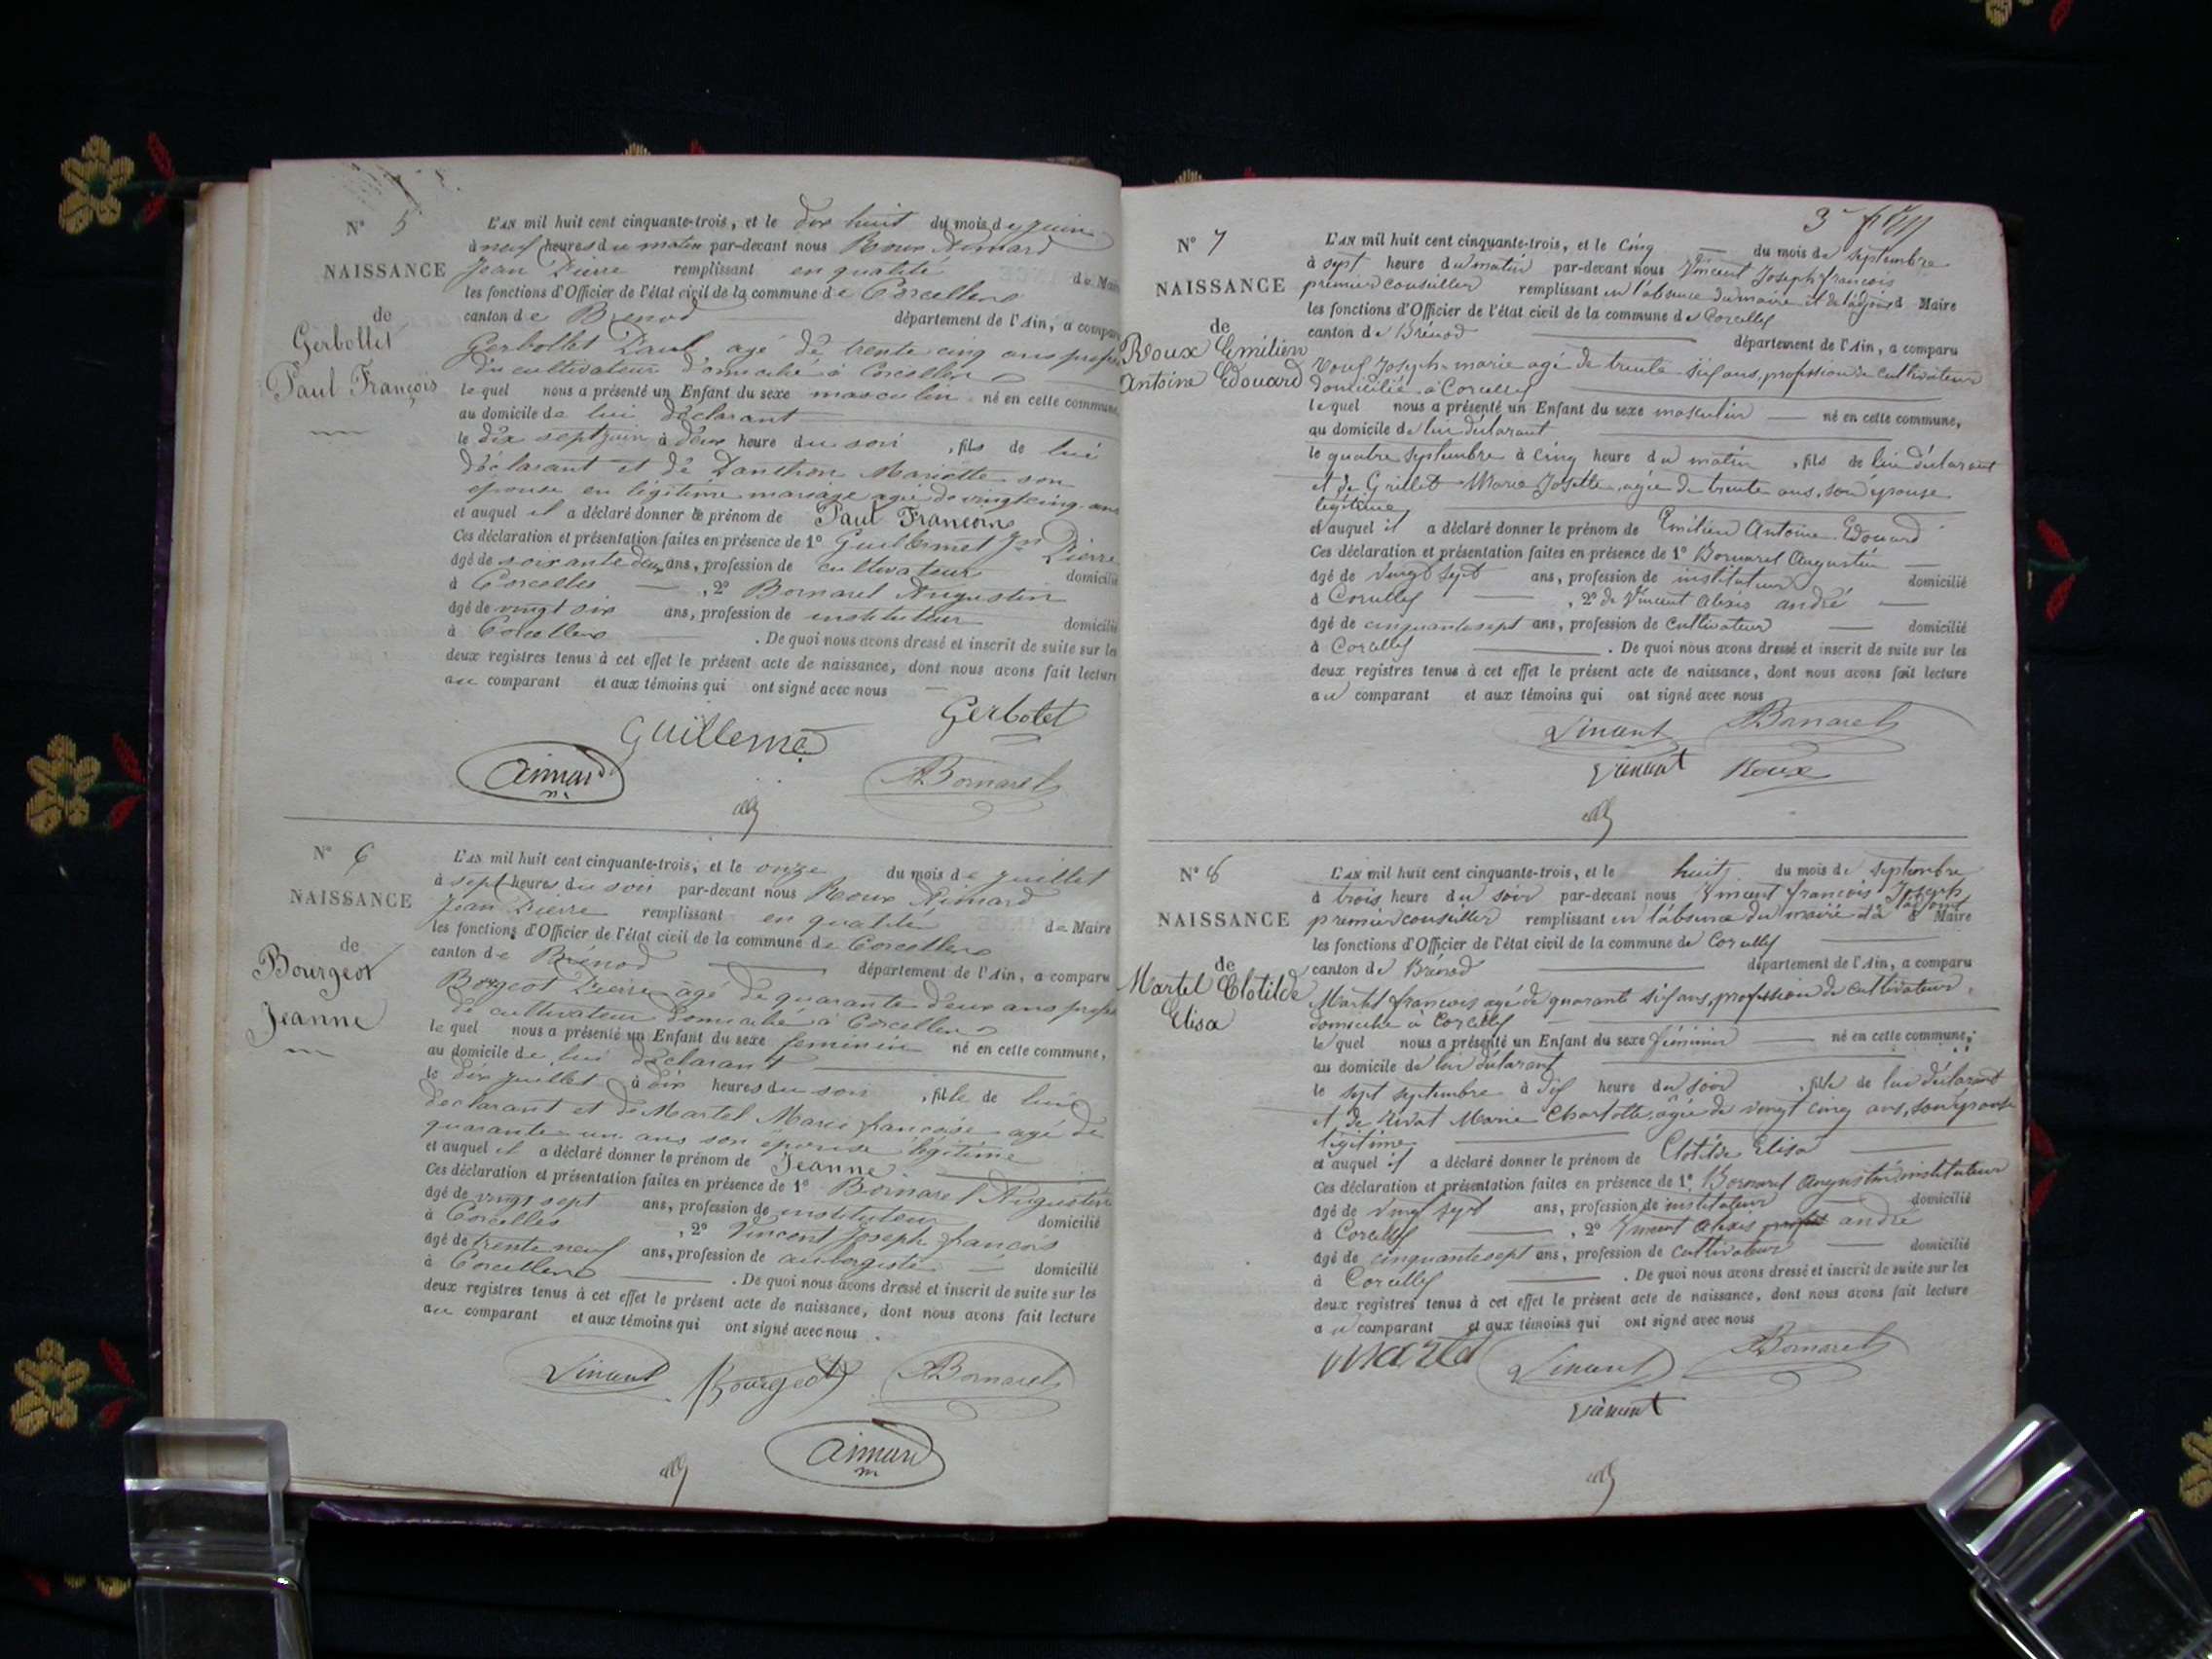 N° 5
NAISSANCE
de
Gerbollet
Paul François
L'AN mil huit cent cinquante-trois, et le dix huit du mois de juin
à neuf heures du matin par-devant nous Roux Aimard
Jean Pierre remplissant en qualité de Maire
les fonctions d'Officier de l'état civil de la commune de Corcelles
canton de Brenod département de l'Ain, a comparu
Gerbollet Paul, agé de trente cinq ans profes
de cultivateur domicilié à Corcelles
lequel nous a présenté un Enfant du sexe masculin né en cette commune,
au domicile de lui déclarant
le dix sept juin à deux heure du soir, fils de lui
déclarant et de Mariette son
epouse en légitime mariage agée de vingt cinq ans
et auquel il a déclaré donner le prénom de Paul François
Ces déclaration et présentation faites en présence de 1° Guillermet Jn Pierre
âgé de soixante deux ans, profession de cultivateur domicilié
à Corcelles — , 2° Bornarel Augustin
âgé de vingt six ans, profession de instituteur domicilié
à Corcelles . De quoi nous avons dressé et inscrit de suite sur les
deux registres tenus à cet effet le présent acte de naissance, dont nous avons fait lecture
au comparant et aux témoins qui ont signé avec nous
Gerbolet
Guilleme
Aimard
Bornarel
N° 6
NAISSANCE
de
Bourgeot
Jeanne
L'AN mil huit cent cinquante-trois, et le onze du mois de juillet
à sept heures du soir par-devant nous Roux Aimard
Jean Pierre remplissant en qualité de Maire
les fonctions d'Officier de l'état civil de la commune de Corcelles
canton de Brénod département de l'Ain, a comparu
Pierre âgé de quarante deux ans profes
de cultivateur domicilié à Corcelles
lequel nous a présenté un Enfant du sexe feminin né en cette commune,
au domicile de lui déclarant
le dix juillet à dix heures du soir, fille de lui
declarant et de Martel Marie françoise agé de
quarante un ans son épouse légitime
et auquel il a déclaré donner le prénom de Jeanne
Ces déclaration et présentation faites en présence de 1° Bornarel Augustin
âgé de vingt sept ans, profession de instituteur domicilié
à Corcelles , 2° Vincent Joseph françois
âgé de trente neuf ans, profession de aubergiste domicilié
à Corcelles . De quoi nous avons dressé et inscrit de suite sur les
deux registres tenus à cet effet le présent acte de naissance, dont nous avons fait lecture
au comparant et aux témoins qui ont signé avec nous
Vincent Bourgeot Bornarel
Aimard
N° 7
NAISSANCE
de
Roux Emilien
Antoine Edouard
L'AN mil huit cent cinquante-trois, et le cinq — du mois de septembre
à sept heure du matin par-devant nous Vincent Joseph françois
premier conseiller remplissant en l'absence du maire et de l'adjoint d Maire
les fonctions d'Officier de l'état civil de la commune de Corcelles
canton de Brénod département de l'Ain, a comparu
Roux Joseph-marie agé de trente six ans, profession de cultivateur
domicilié à Corcelles
lequel nous a présenté un Enfant du sexe masculin — né en cette commune,
au domicile de lui déclarant
le quatre septembre à cinq heure du matin, fils de lui déclarant
et de Grillet Marie Josette, agée de trente ans, son épouse
légitime
et auquel il a déclaré donner le prénom de Emilien Antoine Edouard
Ces déclaration et présentation faites en présence de 1° Bornarel Augustin
âgé de vingt sept ans, profession de instituteur domicilié
à Corcelles — , 2° de Vincent alexis andré —
âgé de cinquante sept ans, profession de cultivateur — domicilié
à Corcelles . De quoi nous avons dressé et inscrit de suite sur les
deux registres tenus à cet effet le présent acte de naissance, dont nous avons fait lecture
au comparant et aux témoins qui ont signé avec nous
Vincent Bornarel
Vincent Roux
N° 8
NAISSANCE
de
Martel Clotilde
Elisa
L'AN mil huit cent cinquante-trois, et le huit du mois de septembre
à trois heure du soir par-devant nous Vincent françois Joseph
premier conseiller remplissant en l'absence du maire et de l'adjoint d Maire
les fonctions d'Officier de l'état civil de la commune de Corcelles
canton de Brénod département de l'Ain, a comparu
Martel françois agé de quarante six ans, profession de cultivateur,
domicilié à Corcelles
lequel nous a présenté un Enfant du sexe féminin — né en cette commune,
au domicile de lui déclarant
le sept septembre à dix heure du soir, fille de lui déclarant
et de Marie Charlotte, âgée de vingt cinq ans, son épouse
légitime
et auquel il a déclaré donner le prénom de Clotilde Elisa
Ces déclaration et présentation faites en présence de 1° Bornarel Augustin instituteur
âgé de vingt sept ans, profession de instituteur — domicilié
à Corcelles — , 2° Vincent alexis andré
âgé de cinquante sept ans, profession de cultivateur — domicilié
à Corcelles . De quoi nous avons dressé et inscrit de suite sur les
deux registres tenus à cet effet le présent acte de naissance, dont nous avons fait lecture
au comparant et aux témoins qui ont signé avec nous
Martel Vincent Bornarel
Vincent